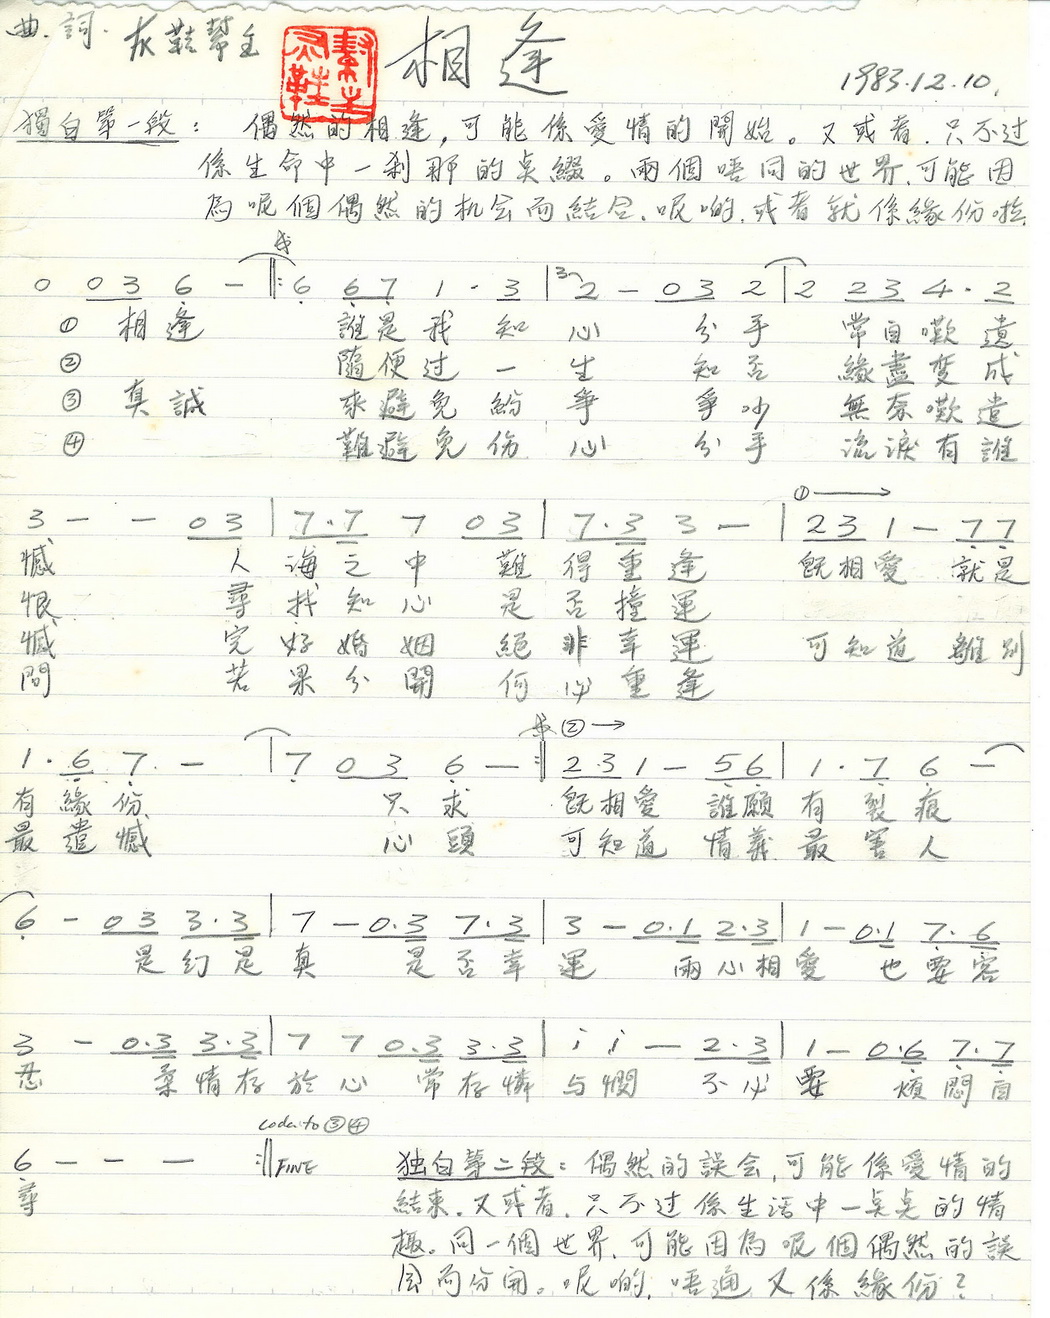 曲.詞. 灰鞋幫主 相逢 1983.12.10.
獨白第一段： 偶然的相逢,可能係愛情的開始。又或者.只不过
係生命中一刹那的点綴。兩個唔同的世界.可能因
為呢個偶然的机会而結合.呢啲.或者就係緣份啦.
0 03 6 - ‖: 6 67 1 · 3 | 3 2 - 03 2 | 2 23 4 · 2
① 相逢 誰是我知心 分手 常自嘆遺
② 隨便过一生 知否 緣盡变成
③ 真誠 求避免紛爭 爭吵 無奈嘆遺
④ 難避免伤心 分手 流淚有誰
①→
3 - - 03 | 7·7 7 03 | 7·3 3 - | 231 - 77
憾 人海之中 難得重逢 既相愛 就是
恨 尋找知心 是否撞運
憾 完好婚姻 絕非幸運 可知道 離別
問 若果分開 何必重逢
②→
1 · 6 7 - | 7 03 6 - :‖ 2·31 - 56 | 1 · 7 6 -
有緣份 只求 既相愛 誰願有裂痕
最遺憾 心頭 可知道 情義最害人
6 - 03 3·3 | 7 - 0·3 7·3 | 3 - 0·1 2·3 | 1 - 0·1 7·6
是幻是真 是否幸運 兩心相愛 也要容
3 - 0·3 3·3 | 7 7 0·3 3·3 | i i - 2·3 | 1 - 0·6 7·7
忍 柔情存於心 常存憐与憫 不必要 煩悶自
coda to ③④
6 - - - :‖ FINE
尋
独白第二段：偶然的誤会,可能係愛情的
結束.又或者.只不过係生活中一点点的情
趣。同一個世界.可能因為呢個偶然的誤
会而分開。呢啲,唔通又係緣份？